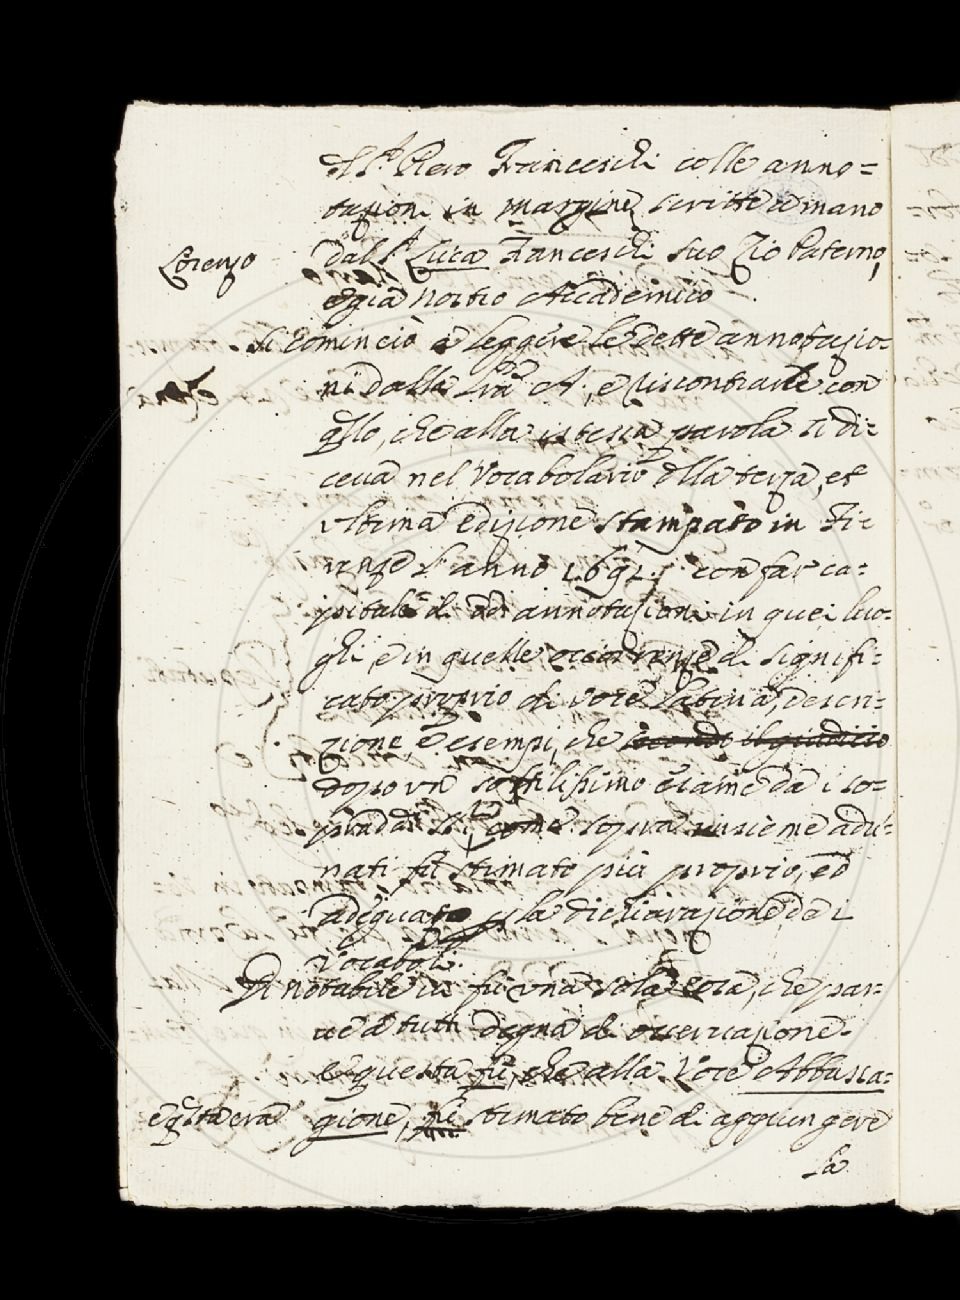 del S.r Piero Franceschi colle anno=
tazioni in margine scritte a mano
Lorenzo
dal S.r Luca Franceschi suo Zio Paterno,
e già nostro Accademico
Si cominciò a leggere le dette annotazio-
ni dalla A, e riscontrarle con
q.llo, che alla istessa parola si di=
ceva nel Vocabolario d.lla terza, et
ultima edizione stampato in Fi=
renze l'anno 1691: con far ca=
pitale di d.e annotazioni in quei luo-
ghi, e in quelle occorrenze di signifi=
cato proprio di voce Latina, descri=
zione, e esempi, che secondo il giudizio
dopo un sottilissimo esame da i so=
prad.i come sopra insieme adu=
nati fù stimato più proprio, ed
adeguato p la dichiarazione de i
Vocaboli.
Di notabile vi fù una sola cosa, che par=
ve a tutti degna di osservazione.
e questa fù, che alla Voce Abbacia=
e q.sta era
gione, stimato bene di aggiungere
la